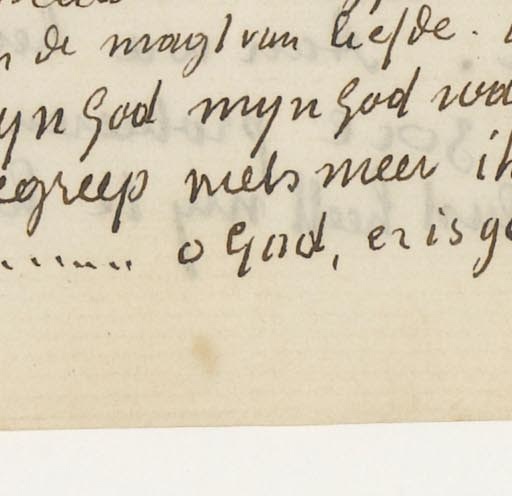 de magt van liefde.
yn God myn God wa
egreep niets meer ik
....... o God, er is ge